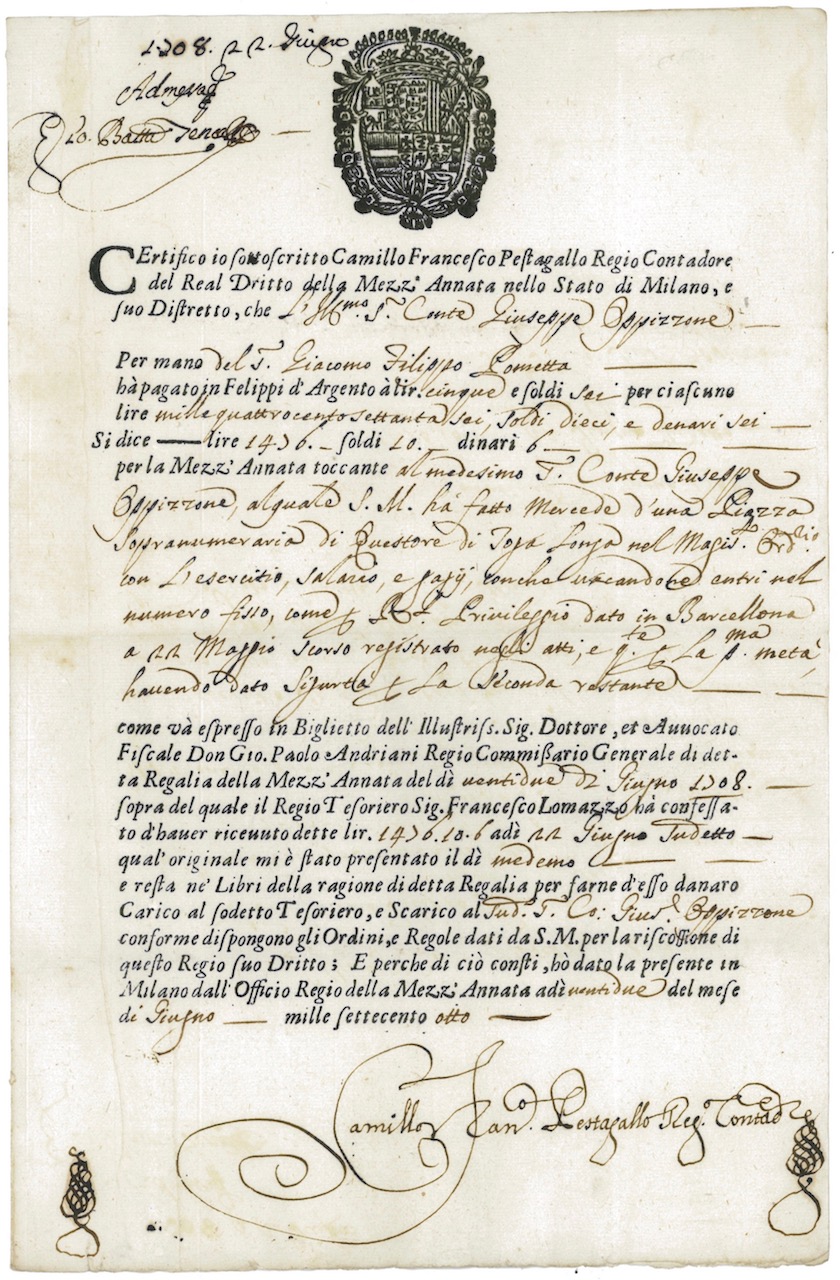 1708. 22. Giugno
Io. Batta
CErtifico io sottoscritto Camillo Francesco Pestagallo Regio Contadore
del Real Dritto della Mezz' Annata nello Stato di Milano, e
suo Distretto, che L'Ill.mo S.r Conte Giuseppe Oppizzone
Per mano del S. Giacomo Filippo Pometta
hà pagato in Felippi d'Argento à lir. cinque e soldi sei per ciascuno
lire mille quattrocento settanta sei, soldi dieci, e denari sei
Si dice — lire 1476. — soldi 10. — dinari 6 —
per la Mezz' Annata toccante al medesimo S. Conte Giuseppe
Oppizzone, al quale S. M. hà fatto Mercede d'una Piazza
sopranumeraria di Questore di Toga Longa nel Magis. Ord.rio
con L'esercitio, salario, e gagij, con che vacandone entri nel
numero fisso, come Privileggio dato in Barcellona
a 22 Maggio scorso registrato negli atti, e q.ta La p.ma metà,
havendo dato sigurtà La seconda restante
come và espresso in Biglietto dell'Illustriss. Sig. Dottore, et Avvocato
Fiscale Don Gio. Paolo Andriani Regio Commissario Generale di det-
ta Regalia della Mezz' Annata del dì ventidue di Giugno 1708.
sopra del quale il Regio Tesoriero Sig. Francesco Lomazzo hà confessa-
to d'haver ricevuto dette lir. 1476.10.6 adì 22 Giugno sudetto
qual' originale mi è stato presentato il dì medemo
e resta ne' Libri della ragione di detta Regalia per farne d'esso danaro
Carico al sodetto Tesoriero, e Scarico al sud. S. Co: Gius. Oppizzone
conforme dispongono gli Ordini, e Regole dati da S.M. per la riscossione di
questo Regio suo Dritto; E perche di ciò consti, hò dato la presente in
Milano dall'Officio Regio della Mezz' Annata adì ventidue del mese
di Giugno — mille settecento otto —
Camillo Fran.o Pestagallo Reg.o Contad.re